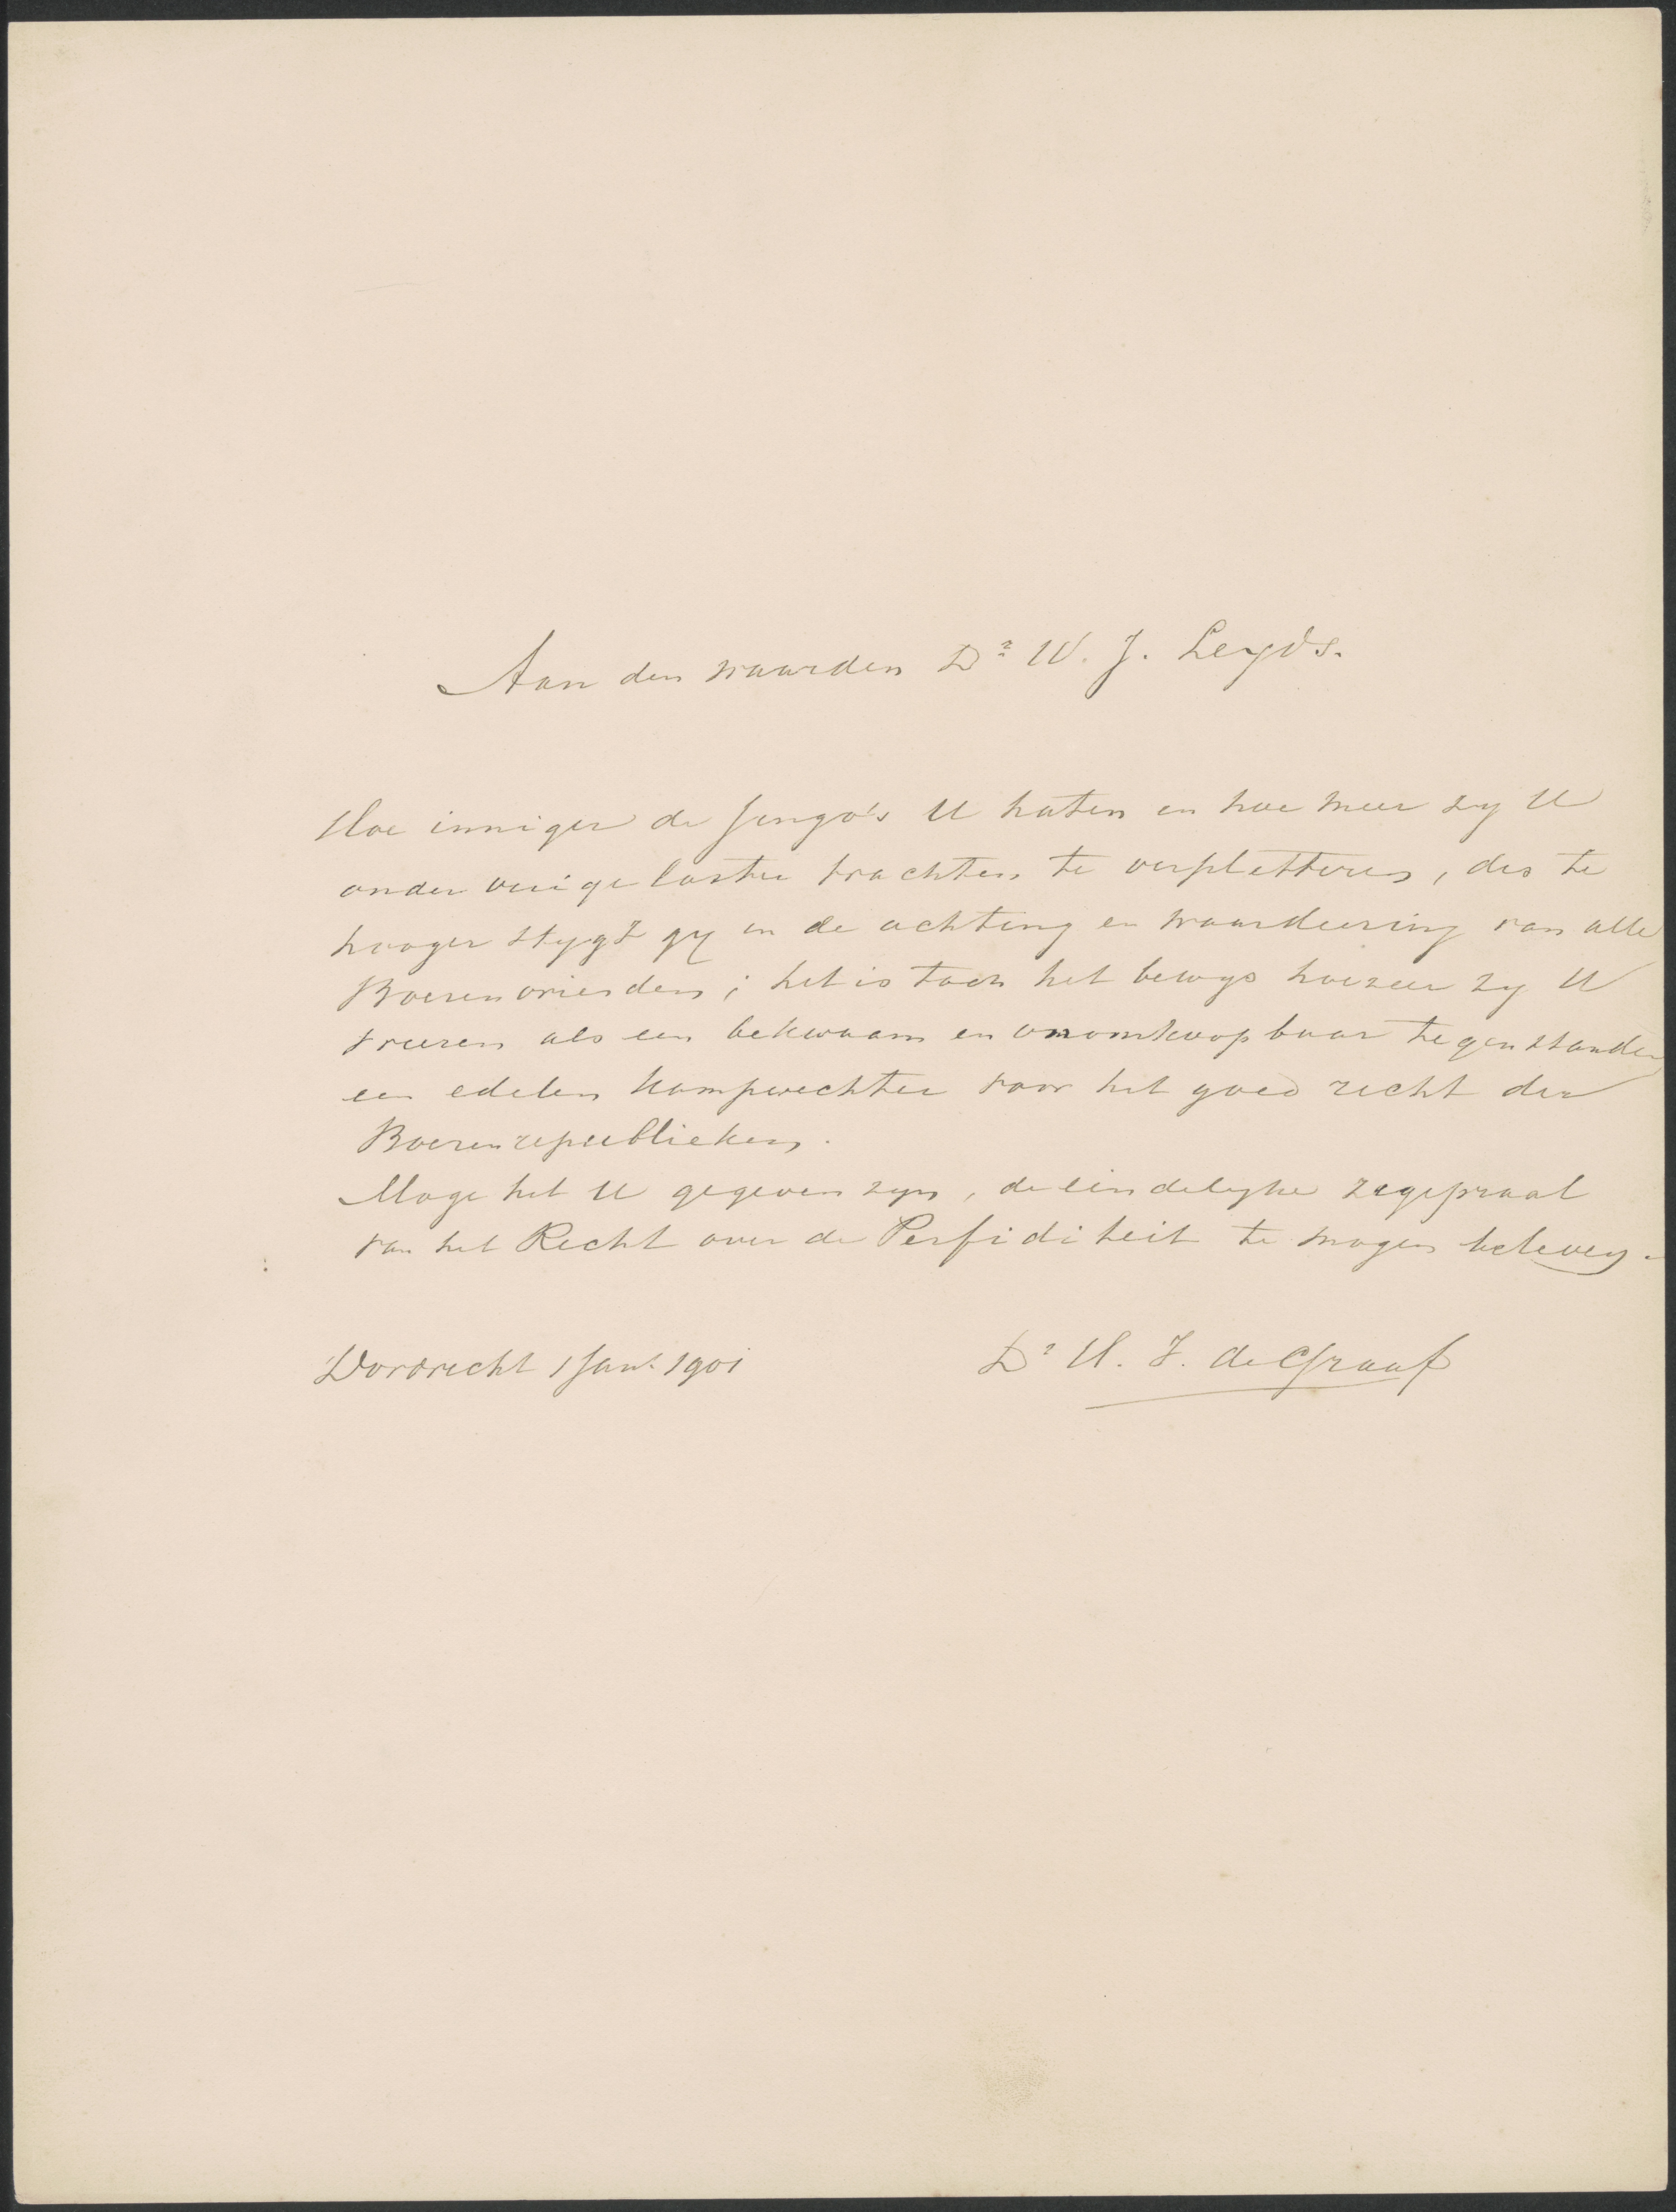 Aan den waarden Dr W. J. Leyds.
Hoe inniger de Jingo's U haten en hoe meer zy U
onder vuige laster trachten te verpletteren, des te
hooger stygt gy in de achting en waardeering van alle
Boerenvrienden; het is toch het bewys hoezeer zy U
vreezen als een bekwaam en onomkoopbaar tegenstander,
een edelen kampvechter voor het goed recht der
Boerenrepublieken.
Moge het U gegeven zyn, de eindelyke zegepraal
van het Recht over de Perfiditeit te mogen beleven.
Dordrecht 1 Jan. 1901
Dr H. J. de Graaf